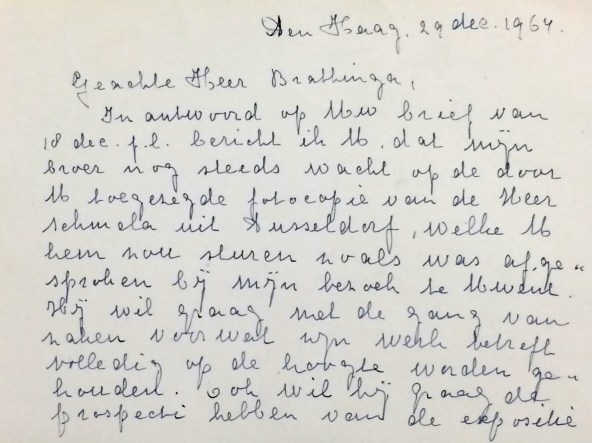 Den Haag, 29 dec. 1964.
Geachte Heer Brattinga,
In antwoord op Uw brief van
18 dec. j.l. bericht ik U. dat mijn
broer nog steeds wacht op de door
U toegezegde fotocopie van de Heer
Schmela uit Dusseldorf, welke U
hem zou sturen zoals was afge„
sproken bij mijn bezoek te Uwent.
Hij wil graag met de gang van
zaken voor wat zijn werk betreft
volledig op de hoogte worden ge„
houden. Ook wil hij graag de
prospecti hebben van de expositie